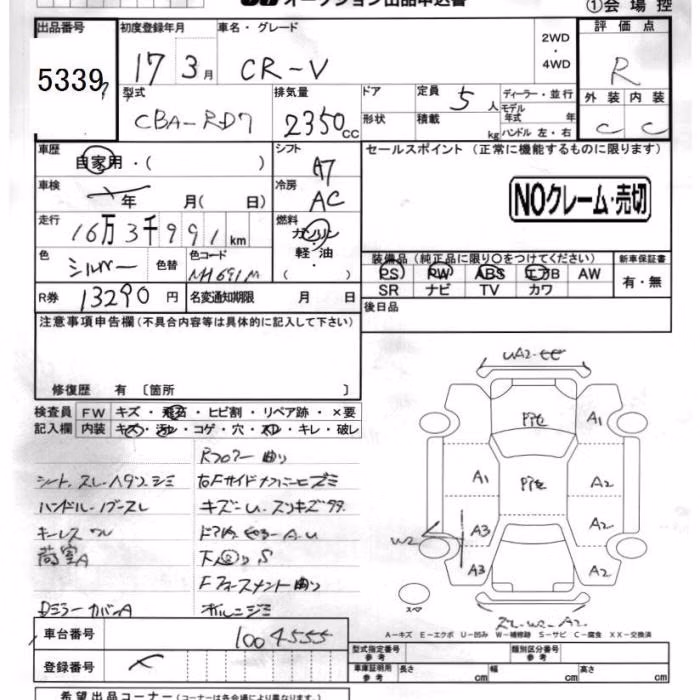 オークション出品申込書
①会場控
出品番号 5339
初度登録年月 17 3月
車名・グレード CR-V
2WD ・ 4WD
評価点 R
型式 CBA-RD7
排気量 2350cc
ドア
形状
定員 5人
積載 kg
ディーラー・並行
モデル年式 年
ハンドル 左・右
外装 C 内装 C
車歴 自家用・( )
シフト A7
セールスポイント (正常に機能するものに限ります)
車検 年 月( 日)
冷房 AC
NOクレーム・売切
走行 16万3千991km
燃料 ガソリン・軽油・( )
色 シルバー 色替
色コード NH691M
装備品 (純正品に限り○をつけてください) 新車保証書
PS PW ABS エアB AW
SR ナビ TV カワ
有・無
R券 13290円
名変通知期限 月 日
後日品
注意事項申告欄(不具合内容等は具体的に記入して下さい)
修復歴 有 〔箇所 〕
検査員記入欄
FW キズ・飛石・ヒビ割・リペア跡・×要
内装 キズ・汚れ・コゲ・穴・スレ・キレ・破レ
Rフロアー曲り
シート、スレ・ハタン シミ
ハンドル・ノブースレ
キーレス ワレ
荷室A
下回り S
DミラーカバーA
UA2
A1
A1
A2
A3
A2
W2
A3
A2
スペア
A-キズ E-エクボ U-凹み W-補修跡 S-サビ C-腐食 XX-交換済
車台番号 1004555
登録番号
型式指定番号 参考
類別区分番号 参考
車庫証明用 参考 長さ cm 幅 cm 高さ cm
希望出品コーナー (コーナーは各会場により異なります。)